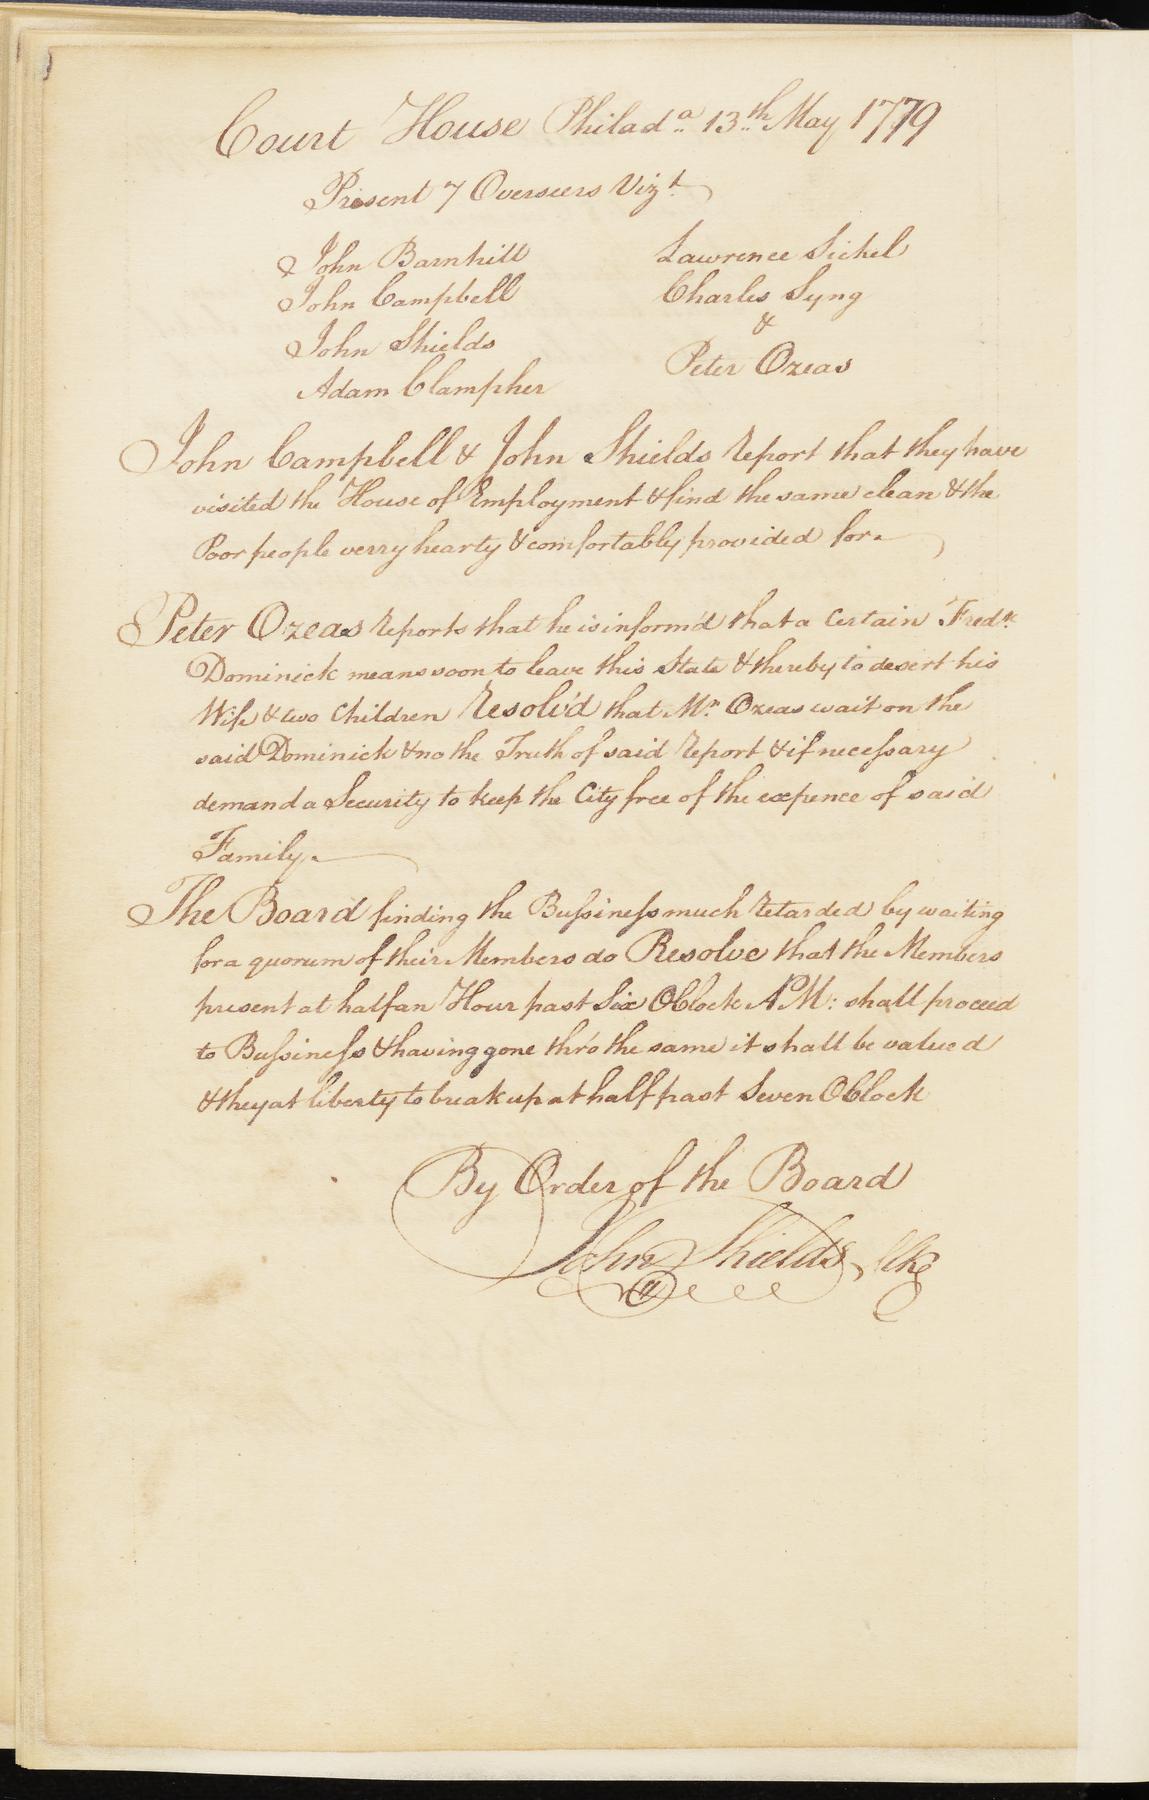 Court House Philad.a 13.th May 1779
Present 7 Overseers Vizt.
John Barnhill
John Campbell
John Shields
Adam Clampher
Lawrence Sickel
Charles Syng
&
Peter Ozeas
John Campbell & John Shields report that they have
visited the House of Employment & find the same clean & the
Poor people verry hearty & comfortably provided for.
Peter Ozeas reports that he is inform'd that a Certain Fredk.
Dominick means soon to leave this State & thereby to desert his
Wife & two Children Resolv'd that Mr. Ozeas wait on the
said Dominick & no the Truth of said Report & if necessary
demand a Security to keep the City free of the expence of said
Family.
The Board finding the Bussiness much retarded by waiting
for a quorum of their Members do Resolve that the Members
present at half an Hour past Six OClock PM: shall proceed
to Bussiness & having gone thro the same it shall be valued
& they at liberty to break up at half past Seven OClock
By Order of the Board
John Shields, Clk